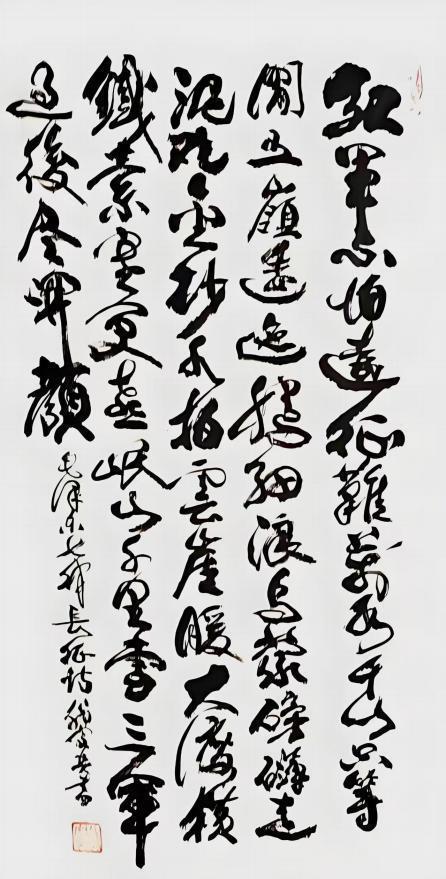 紅軍不怕遠征難萬水千山只等
閒五嶺逶迤騰細浪烏蒙磅礴走
泥丸金沙水拍雲崖暖大渡橫
鐵索寒更喜岷山千里雪三軍
過後尽開顏
毛澤東七律長征詩 書